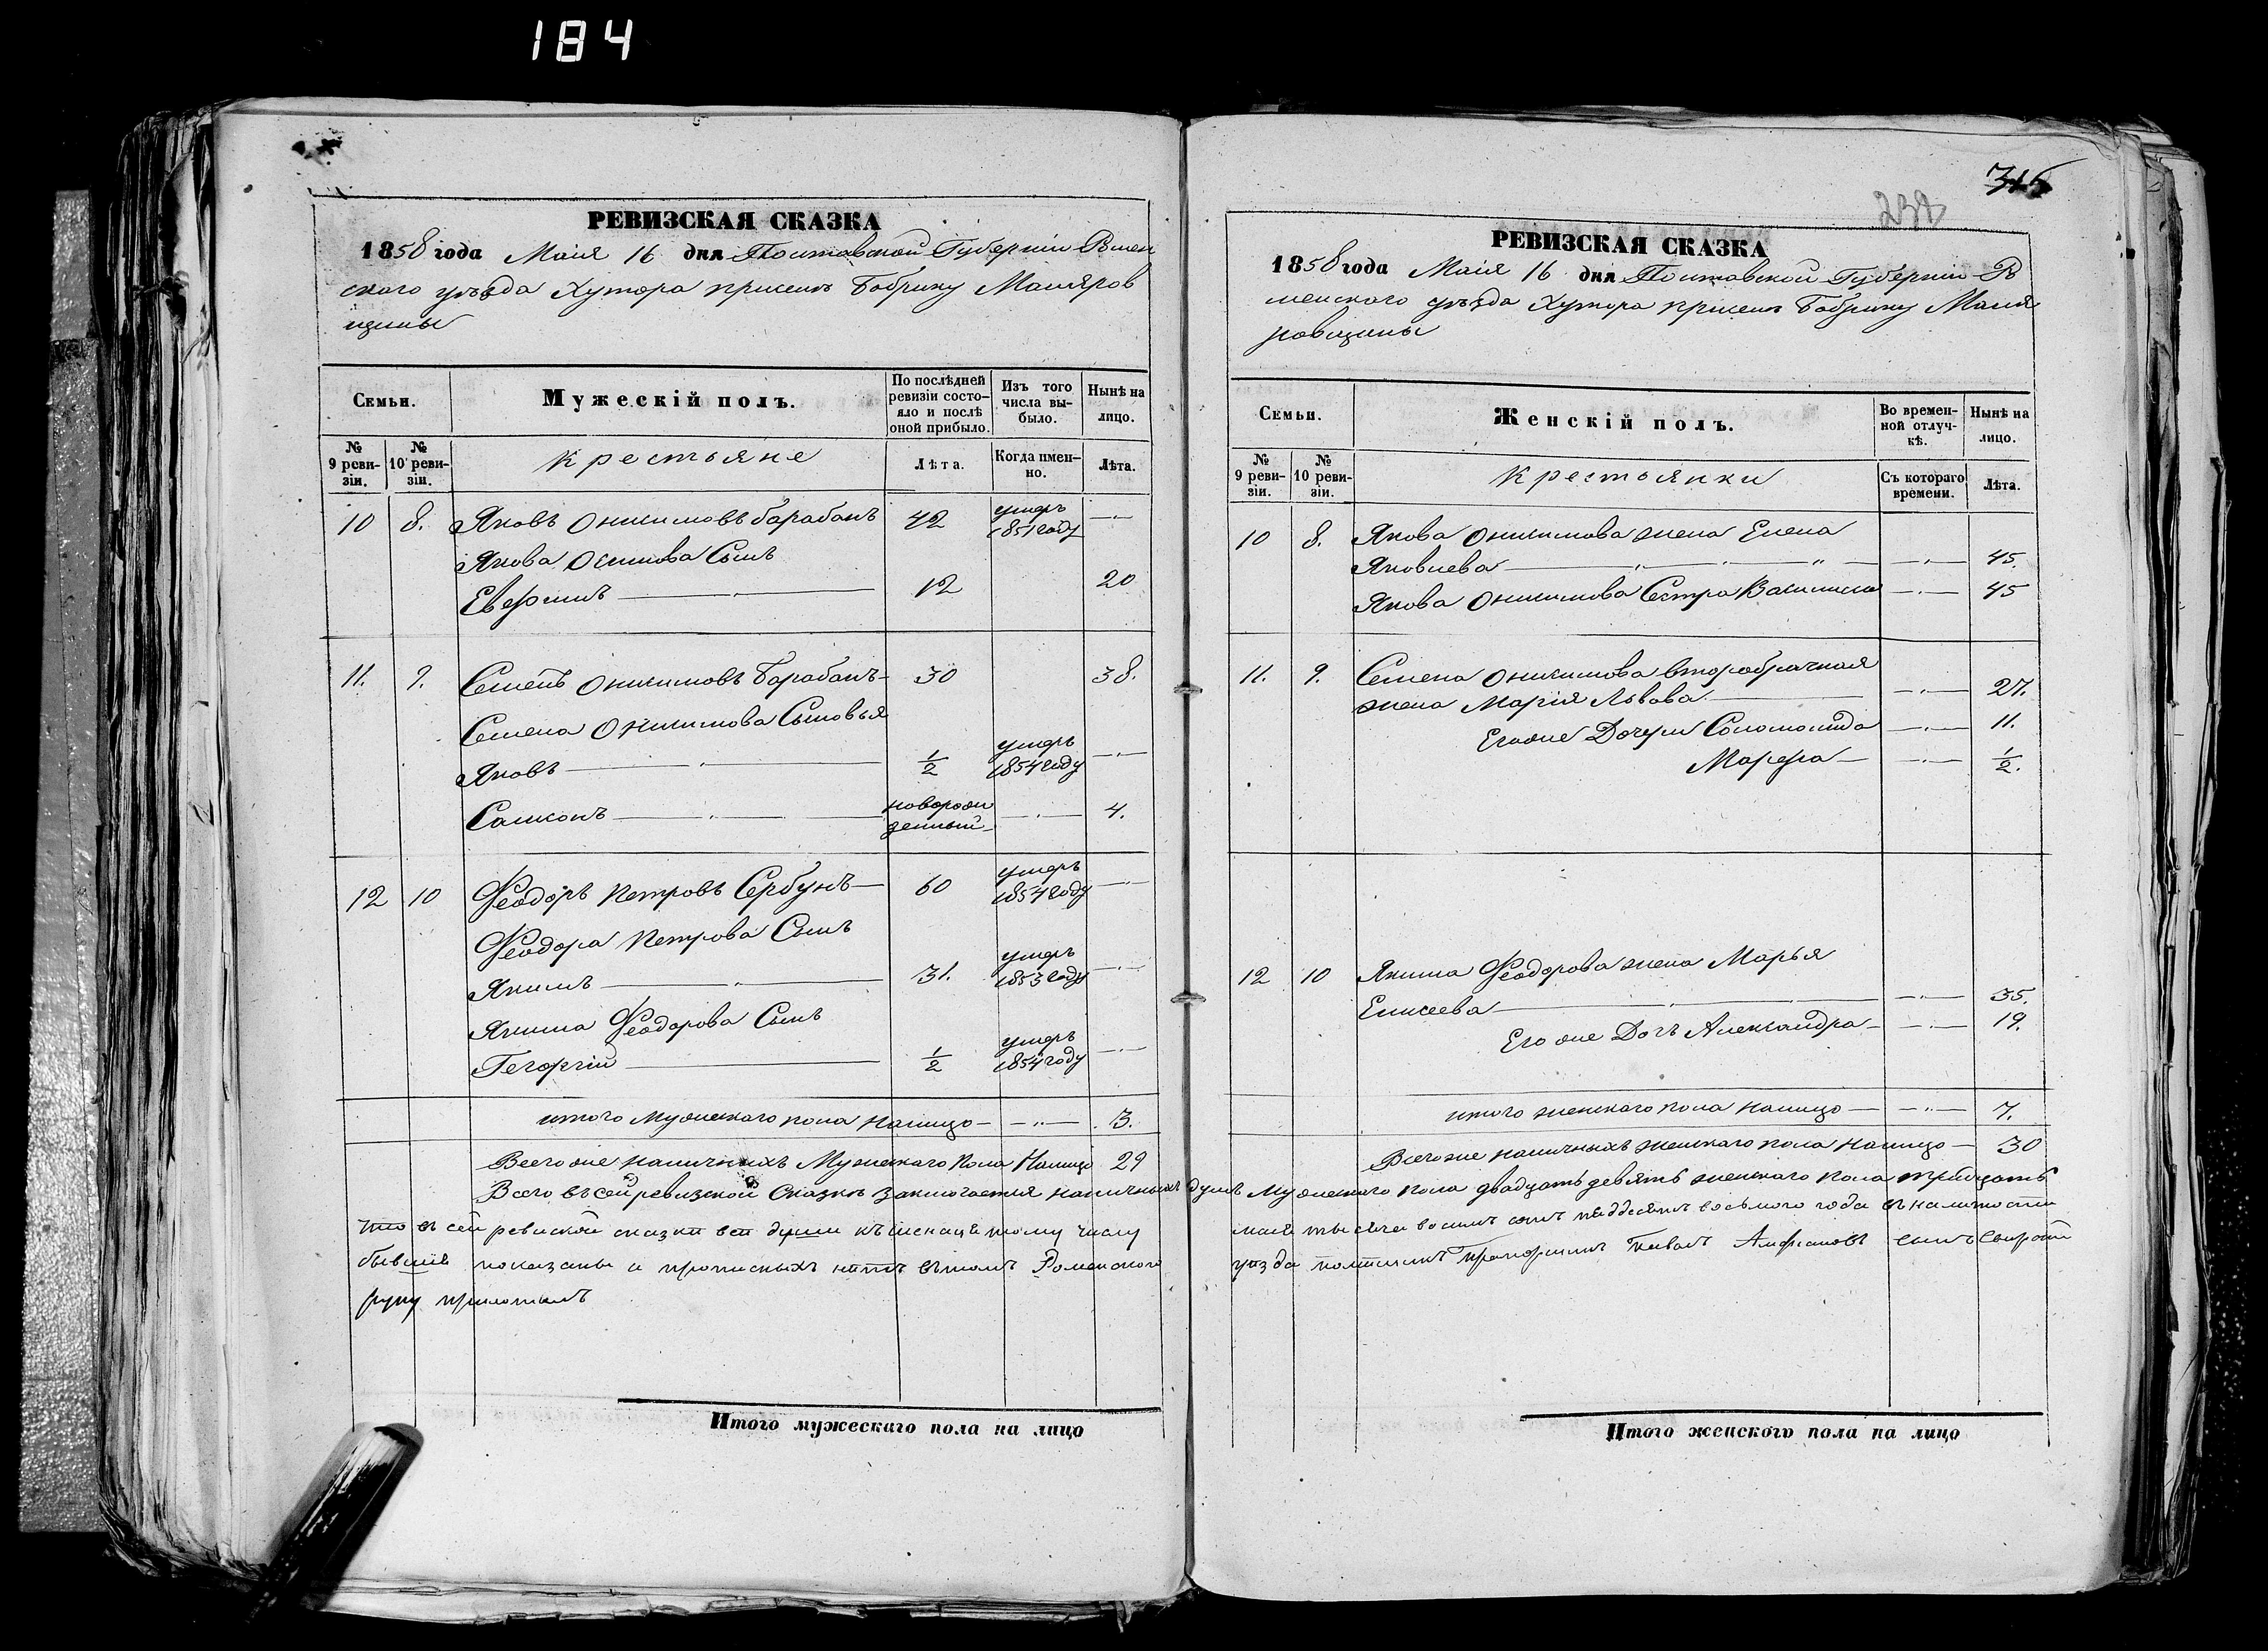 184
РЕВИЗСКАЯ СКАЗКА
1858 года Маія 16 дня Полтавской Губерніи Ромен
скаго уѣзда Хутора приселъ Бобрику Маляров
щины
Семьи.
Мужескій полъ.
По послѣдней ревизіи состояло и послѣ оной прибыло.
Изъ того числа выбыло.
Нынѣ на лицо.
№ 9 ревизіи.
№ 10 ревизіи.
Крестьяне
Лѣта.
Когда именно.
Лѣта.
10 8. Яковъ Онисимовъ барабанъ 42 умеръ 1851 году
Якова Онисимова Сынъ
12 20
11. 9. Семенъ Онисимовъ Барабанъ 30 38.
Семена Онисимова Сыновья
Яковъ 1/2 умеръ 1854 году
Самсонъ новорожденный 4.
12 10 Феодоръ Петровъ Сербунъ 60 умеръ 1854 году
Феодора Петрова Сынъ
Якимъ 31. умеръ 1853 году
Якима Феодорова Сынъ
Георгій 1/2 умеръ 1854 году
итого Мужескаго пола Налицо 3.
Всего же наличныхъ Мужескаго Пола Налицо 29
Всего въ сей ревизской Сказкѣ заключается наличныхъ душъ Мужескаго пола двадцать девять женскаго пола тридцать
Что въ сей ревиской сказки всѣ души къ
бывшія показаны и прописныхъ нѣтъ въ томъ Роменского
руку приложилъ
Итого мужескаго пола на лицо
315
238
РЕВИЗСКАЯ СКАЗКА
1858 года Маія 16 дня Полтавской Губерніи Ро
менскаго уѣзда Хутора приселъ Бобрику Маля
ровщины
Семьи.
Женскій полъ.
Во временной отлучкѣ.
Нынѣ на лицо.
№ 9 ревизіи.
№ 10 ревизіи.
Крестьянки
Съ котораго времени.
Лѣта.
10 8. Якова Онисимова жена Елена
Яковлева 45.
Якова Онисимова Сестра Василиса 45
11. 9. Семена Онисимова второбрачная
жена Марія Львова 27.
Егоже Дочери Соломонида 11.
Марфа 1/2.
12 10 Якима Феодорова жена Марья
Елисеева 35.
Его же Дочь Александра 19.
итого женскаго пола налицо 7.
Всего же наличныхъ женскаго пола налицо 30
маія тысяча восимъ сотъ восьмого года въ наличности
уѣзда сынъ
Итого женскаго пола на лицо